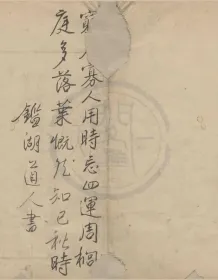 窮寡人用時忘四運周櫚
庭多落葉慨然知已秋時
鑑湖道人書